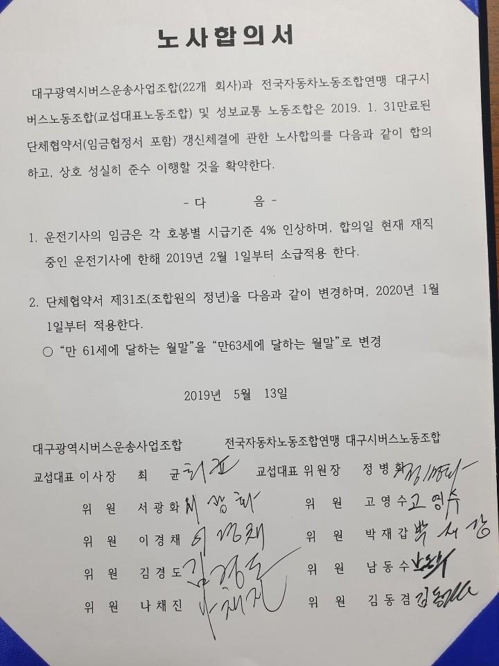 노사합의서
대구광역시버스운송사업조합(22개 회사)과 전국자동차노동조합연맹 대구시
버스노동조합(교섭대표노동조합) 및 성보교통 노동조합은 2019. 1. 31만료된
단체협약서(임금협정서 포함) 갱신체결에 관한 노사합의를 다음과 같이 합의
하고, 상호 성실히 준수 이행할 것을 확약한다.
- 다 음 -
1. 운전기사의 임금은 각 호봉별 시급기준 4% 인상하며, 합의일 현재 재직
중인 운전기사에 한해 2019년 2월 1일부터 소급적용 한다.
2. 단체협약서 제31조(조합원의 정년)을 다음과 같이 변경하며, 2020년 1월
1일부터 적용한다.
○ "만 61세에 달하는 월말"을 "만63세에 달하는 월말"로 변경
2019년 5월 13일
대구광역시버스운송사업조합 전국자동차노동조합연맹 대구시버스노동조합
교섭대표 이사장 최 균 교섭대표 위원장 정병화
위 원 서광화 서광화 위 원 고영수 고영수
위 원 이경채 이경채 위 원 박재갑
위 원 김경도 김경도 위 원 남동수
위 원 나채진 나채진 위 원 김동겸